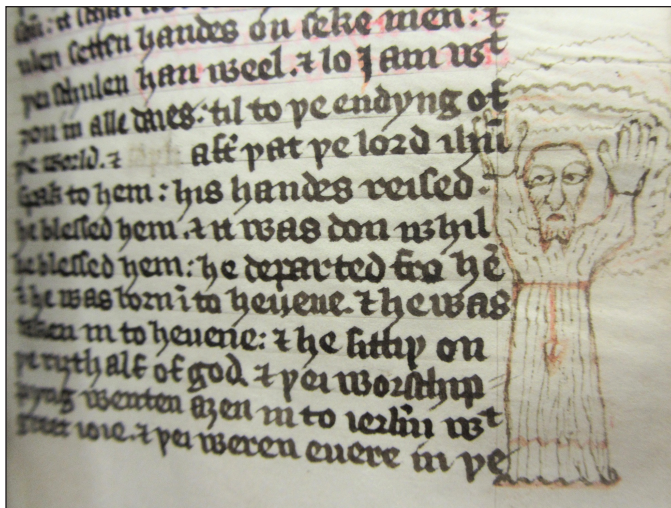 schulen setten handes on seke men: ⁊
þei schulen han weel. ⁊ lo I am wᵗ
ȝou in alle daies: til to þe endyng of
þe world. ⁊ aft̉ þat þe lord ih̄u
spak to hem: his handes reised.
he blessed hem. ⁊ it was don whil
he blessed hem: he departed fro hē
⁊ he was born ī to heuene. ⁊ he was
taken in to heuene: ⁊ he sittiþ on
þe riythalf of god. ⁊ þei worschip
pyng wenten aȝen in to ierlm̄ wᵗ
greet ioie. ⁊ þei weren euere in þe